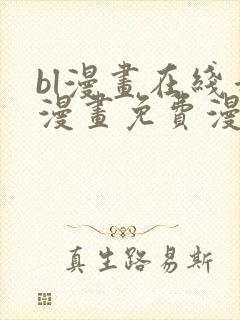 bl漫畫在綫
漫畫免費漫
真生路易斯